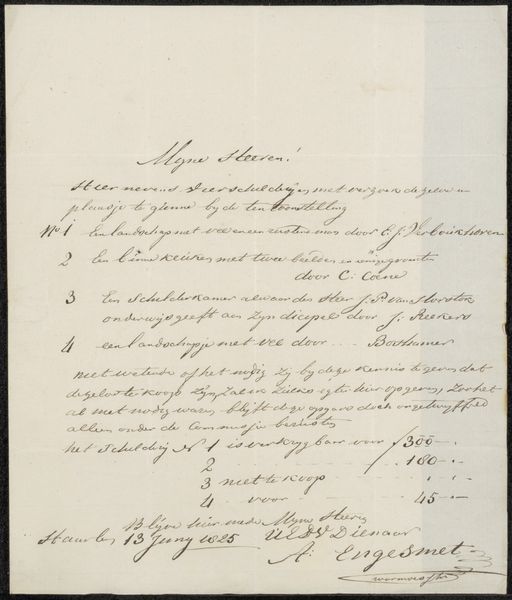 Myne Heeren!
Hier nevens vier schilderyen met verzoek dezelve en
plaatsje te gunnen by de ten toonstelling
No 1 Een landschap met vee en een rustend man door E. J. Verboeckhoven
2 Een binne keuken met twee beelden en
door C: Coene
3 Een Schilderkamer alwaar des Heer J. P. van Horstok
onderwijs geeft aan Zyn dicipel door J: Reekers
4 een landschapje met vee door ... Boshamer
niet wetende of het nodig Zy by deze kennis te geven dat
dezelve te koop Zyn, Zal ik Zulks hier opgeven, Zoo het
al niet nodig ware, blyft deze opgave doch
alleen onder de Commissie berusten
het Schildery N 1 is verkrygbaar voor ƒ 300 - .
2 - - - 180 - .
3 niet te koop
4 voor - - - 45 - .
Blyve hier mede Myne Heeren
Haarlem 13 Juny 1825 UEDW Dienaar
A: Engesmet